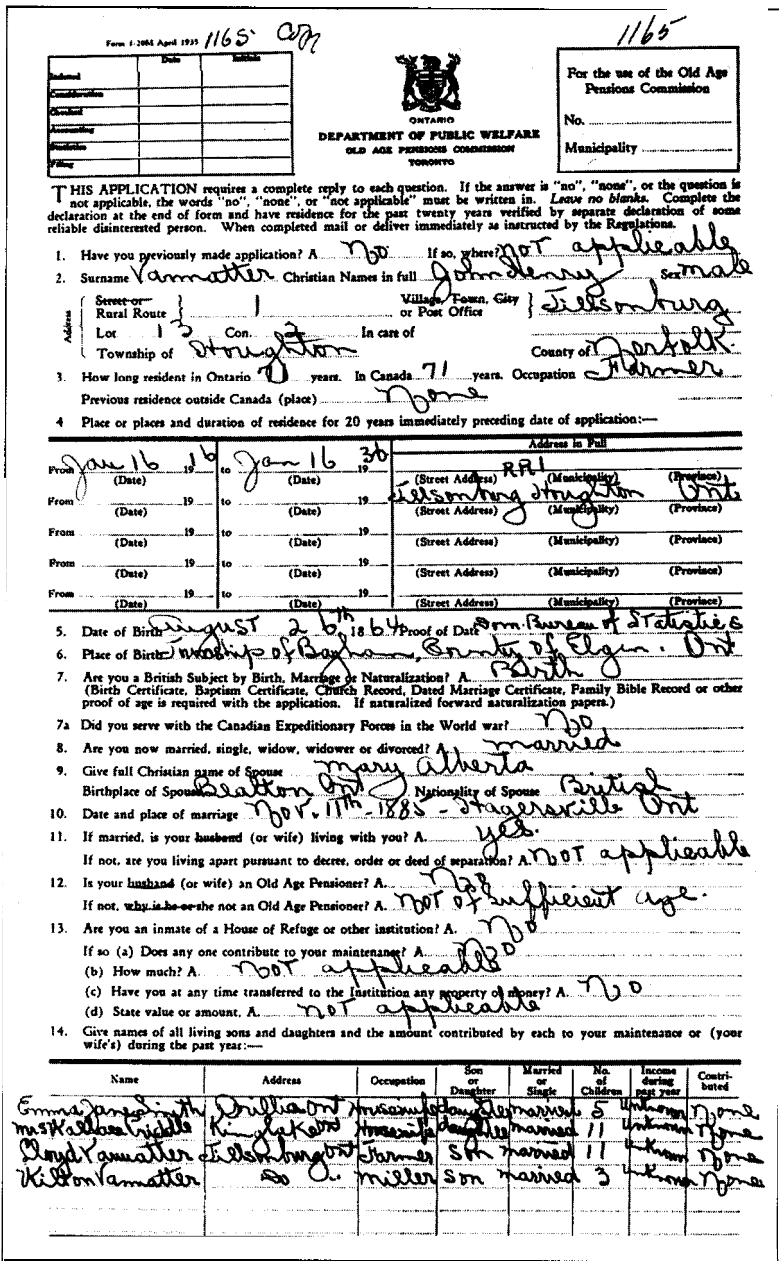 Form 1-20M April 1935 1165 Copy 1165
Date Initials
Indexed
Consideration
Checked
Accounting
Statistics
Filing
ONTARIO
DEPARTMENT OF PUBLIC WELFARE
OLD AGE PENSIONS COMMISSION
TORONTO
For the use of the Old Age
Pensions Commission
No.
Municipality
THIS APPLICATION requires a complete reply to each question. If the answer is "no", "none", or the question is
not applicable, the words "no", "none", or "not applicable" must be written in. Leave no blanks. Complete the
declaration at the end of form and have residence for the past twenty years verified by separate declaration of some
reliable disinterested person. When completed mail or deliver immediately as instructed by the Regulations.
1. Have you previously made application? A No If so, where? not applicable
2. Surname Vanmatter Christian Names in full John Henry Sex male
Address
Street or Rural Route 1 Village, Town, City or Post Office Tillsonburg
Lot 13 Con. 2 In care of
Township of Houghton County of Norfolk.
3. How long resident in Ontario 71 years. In Canada 71 years. Occupation Farmer
Previous residence outside Canada (place) None
4 Place or places and duration of residence for 20 years immediately preceding date of application:—
Address in Full
From Jan 16 1916 to Jan 16 1936 RR1
(Date) (Date) (Street Address) (Municipality) (Province)
From 19 to 19 Tillsonburg Houghton Ont
(Date) (Date) (Street Address) (Municipality) (Province)
From 19 to 19
(Date) (Date) (Street Address) (Municipality) (Province)
From 19 to 19
(Date) (Date) (Street Address) (Municipality) (Province)
From 19 to 19
(Date) (Date) (Street Address) (Municipality) (Province)
5. Date of Birth August 26th 1864 Proof of Date Dom. Bureau of Statistics
6. Place of Birth Township of Bayham, County of Elgin. Ont
7. Are you a British Subject by Birth, Marriage or Naturalization? A. Birth
(Birth Certificate, Baptism Certificate, Church Record, Dated Marriage Certificate, Family Bible Record or other
proof of age is required with the application. If naturalized forward naturalization papers.)
7a Did you serve with the Canadian Expeditionary Forces in the World war? No
8. Are you now married, single, widow, widower or divorced? A married
9. Give full Christian name of Spouse Mary Alberta
Birthplace of Spouse Bealton Ont Nationality of Spouse British
10. Date and place of marriage Nov. 11th - 1885 - Hagersville Ont
11. If married, is your husband (or wife) living with you? A. yes.
If not, are you living apart pursuant to decree, order or deed of separation? A. not applicable
12. Is your husband (or wife) an Old Age Pensioner? A. No
If not, why is he or she not an Old Age Pensioner? A. Not of sufficient age.
13. Are you an inmate of a House of Refuge or other institution? A. No
If so (a) Does any one contribute to your maintenance? A. No
(b) How much? A. not applicable
(c) Have you at any time transferred to the Institution any property of money? A. No
(d) State value or amount, A. not applicable
14. Give names of all living sons and daughters and the amount contributed by each to your maintenance or (your
wife's) during the past year:—
Name Address Occupation Son or Daughter Married or Single No. of Children Income during past year Contributed
Emma Jane Smith Orillia Ont Housewife daughter married 5 unknown None
Mrs Wallace Kinglake Ont Housewife daughter married 11 unknown None
Lloyd Vanmatter Tillsonburg Ont Farmer son married 11 unknown None
Wilton Vanmatter Do miller son married 3 unknown None